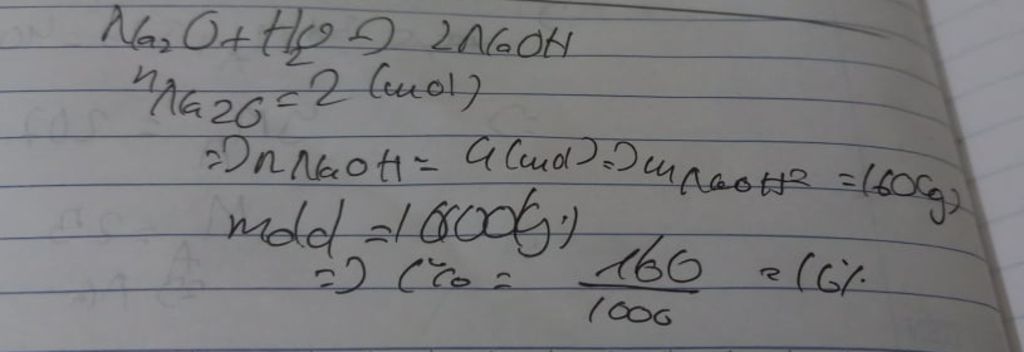 Na2O + H2O => 2NaOH
nNa2O = 2 (mol)
=> nNaOH = 4 (mol) => mNaOH = 160(g)
mdd = 1000(g)
=> C% = 160/1000 = 16%